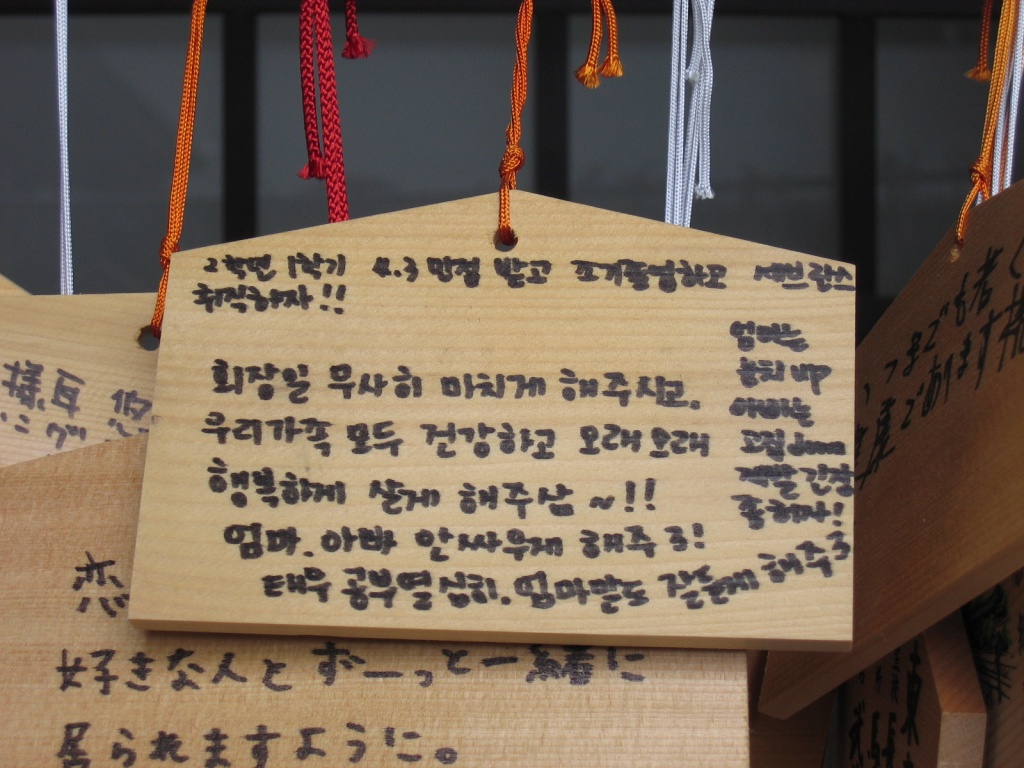 2학년 1학기 4.3 만점 받고 조기졸업하고 세브란스
취직하자!!
엄마는
눈치 up
아빠는
고집 down
제발 긴장
좀 하자!
회장일 무사히 마치게 해주시고.
우리가족 모두 건강하고 오래오래
행복하게 살게 해주삼~!!
엄마. 아빠 안싸우게 해주3!
태우 공부열심히. 엄마말도 잘듣게 해주3
様耳
恋
好きな人とずーっと一緒に
居られますように。